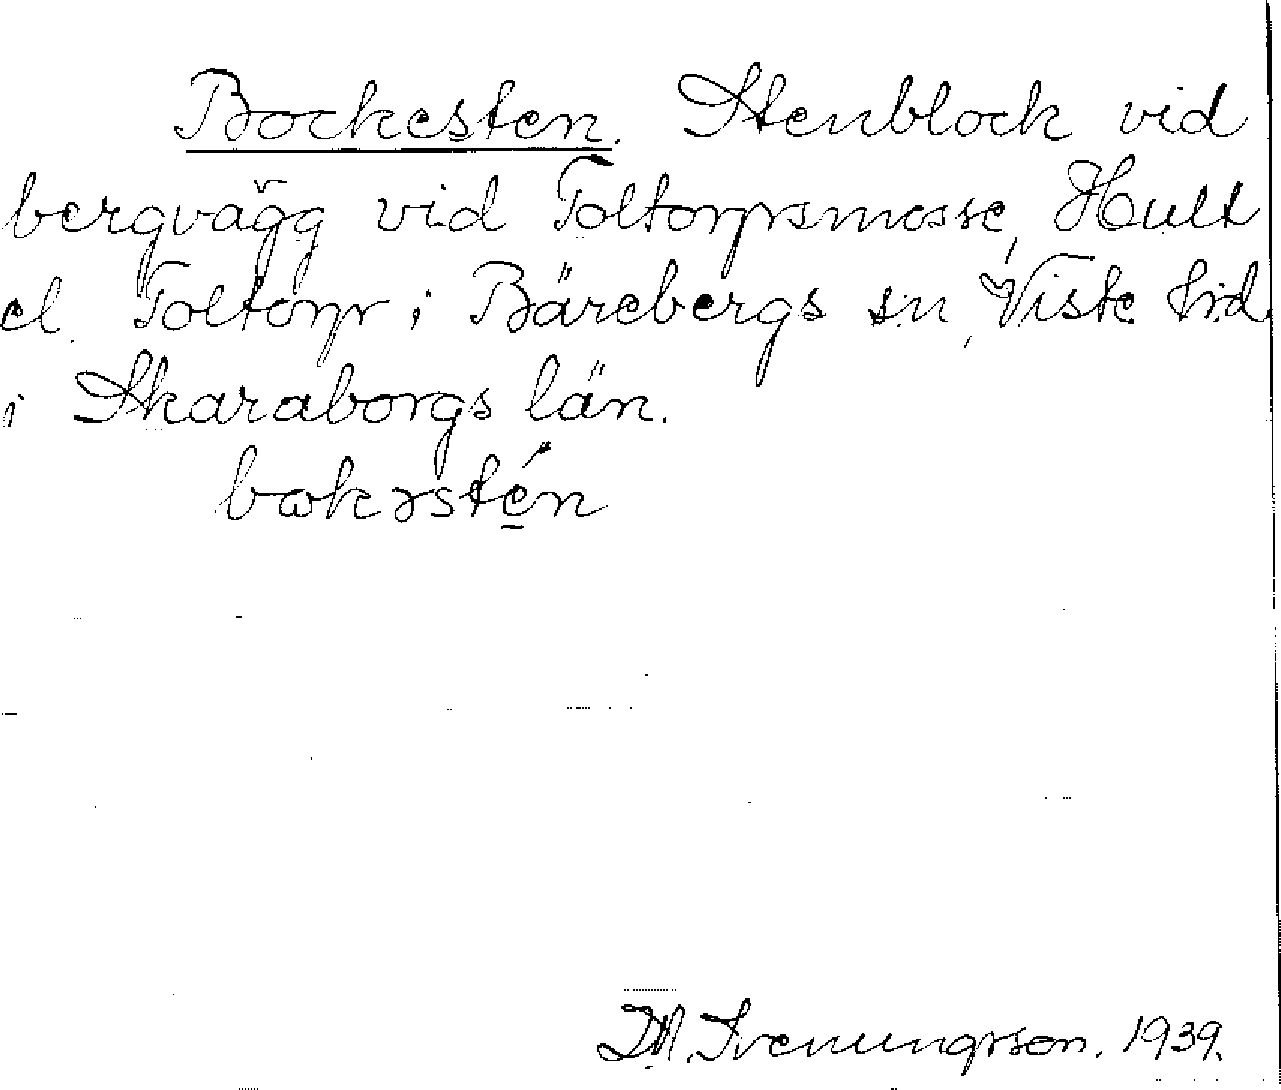 Bockesten. Stenblock vid
bergvägg vid Toltorpsmosse, Hult
el. Toltorp i Bärebergs sn, Viste hd
i Skaraborgs län.
bωkəstén
D.A. Svenungsson. 1939.